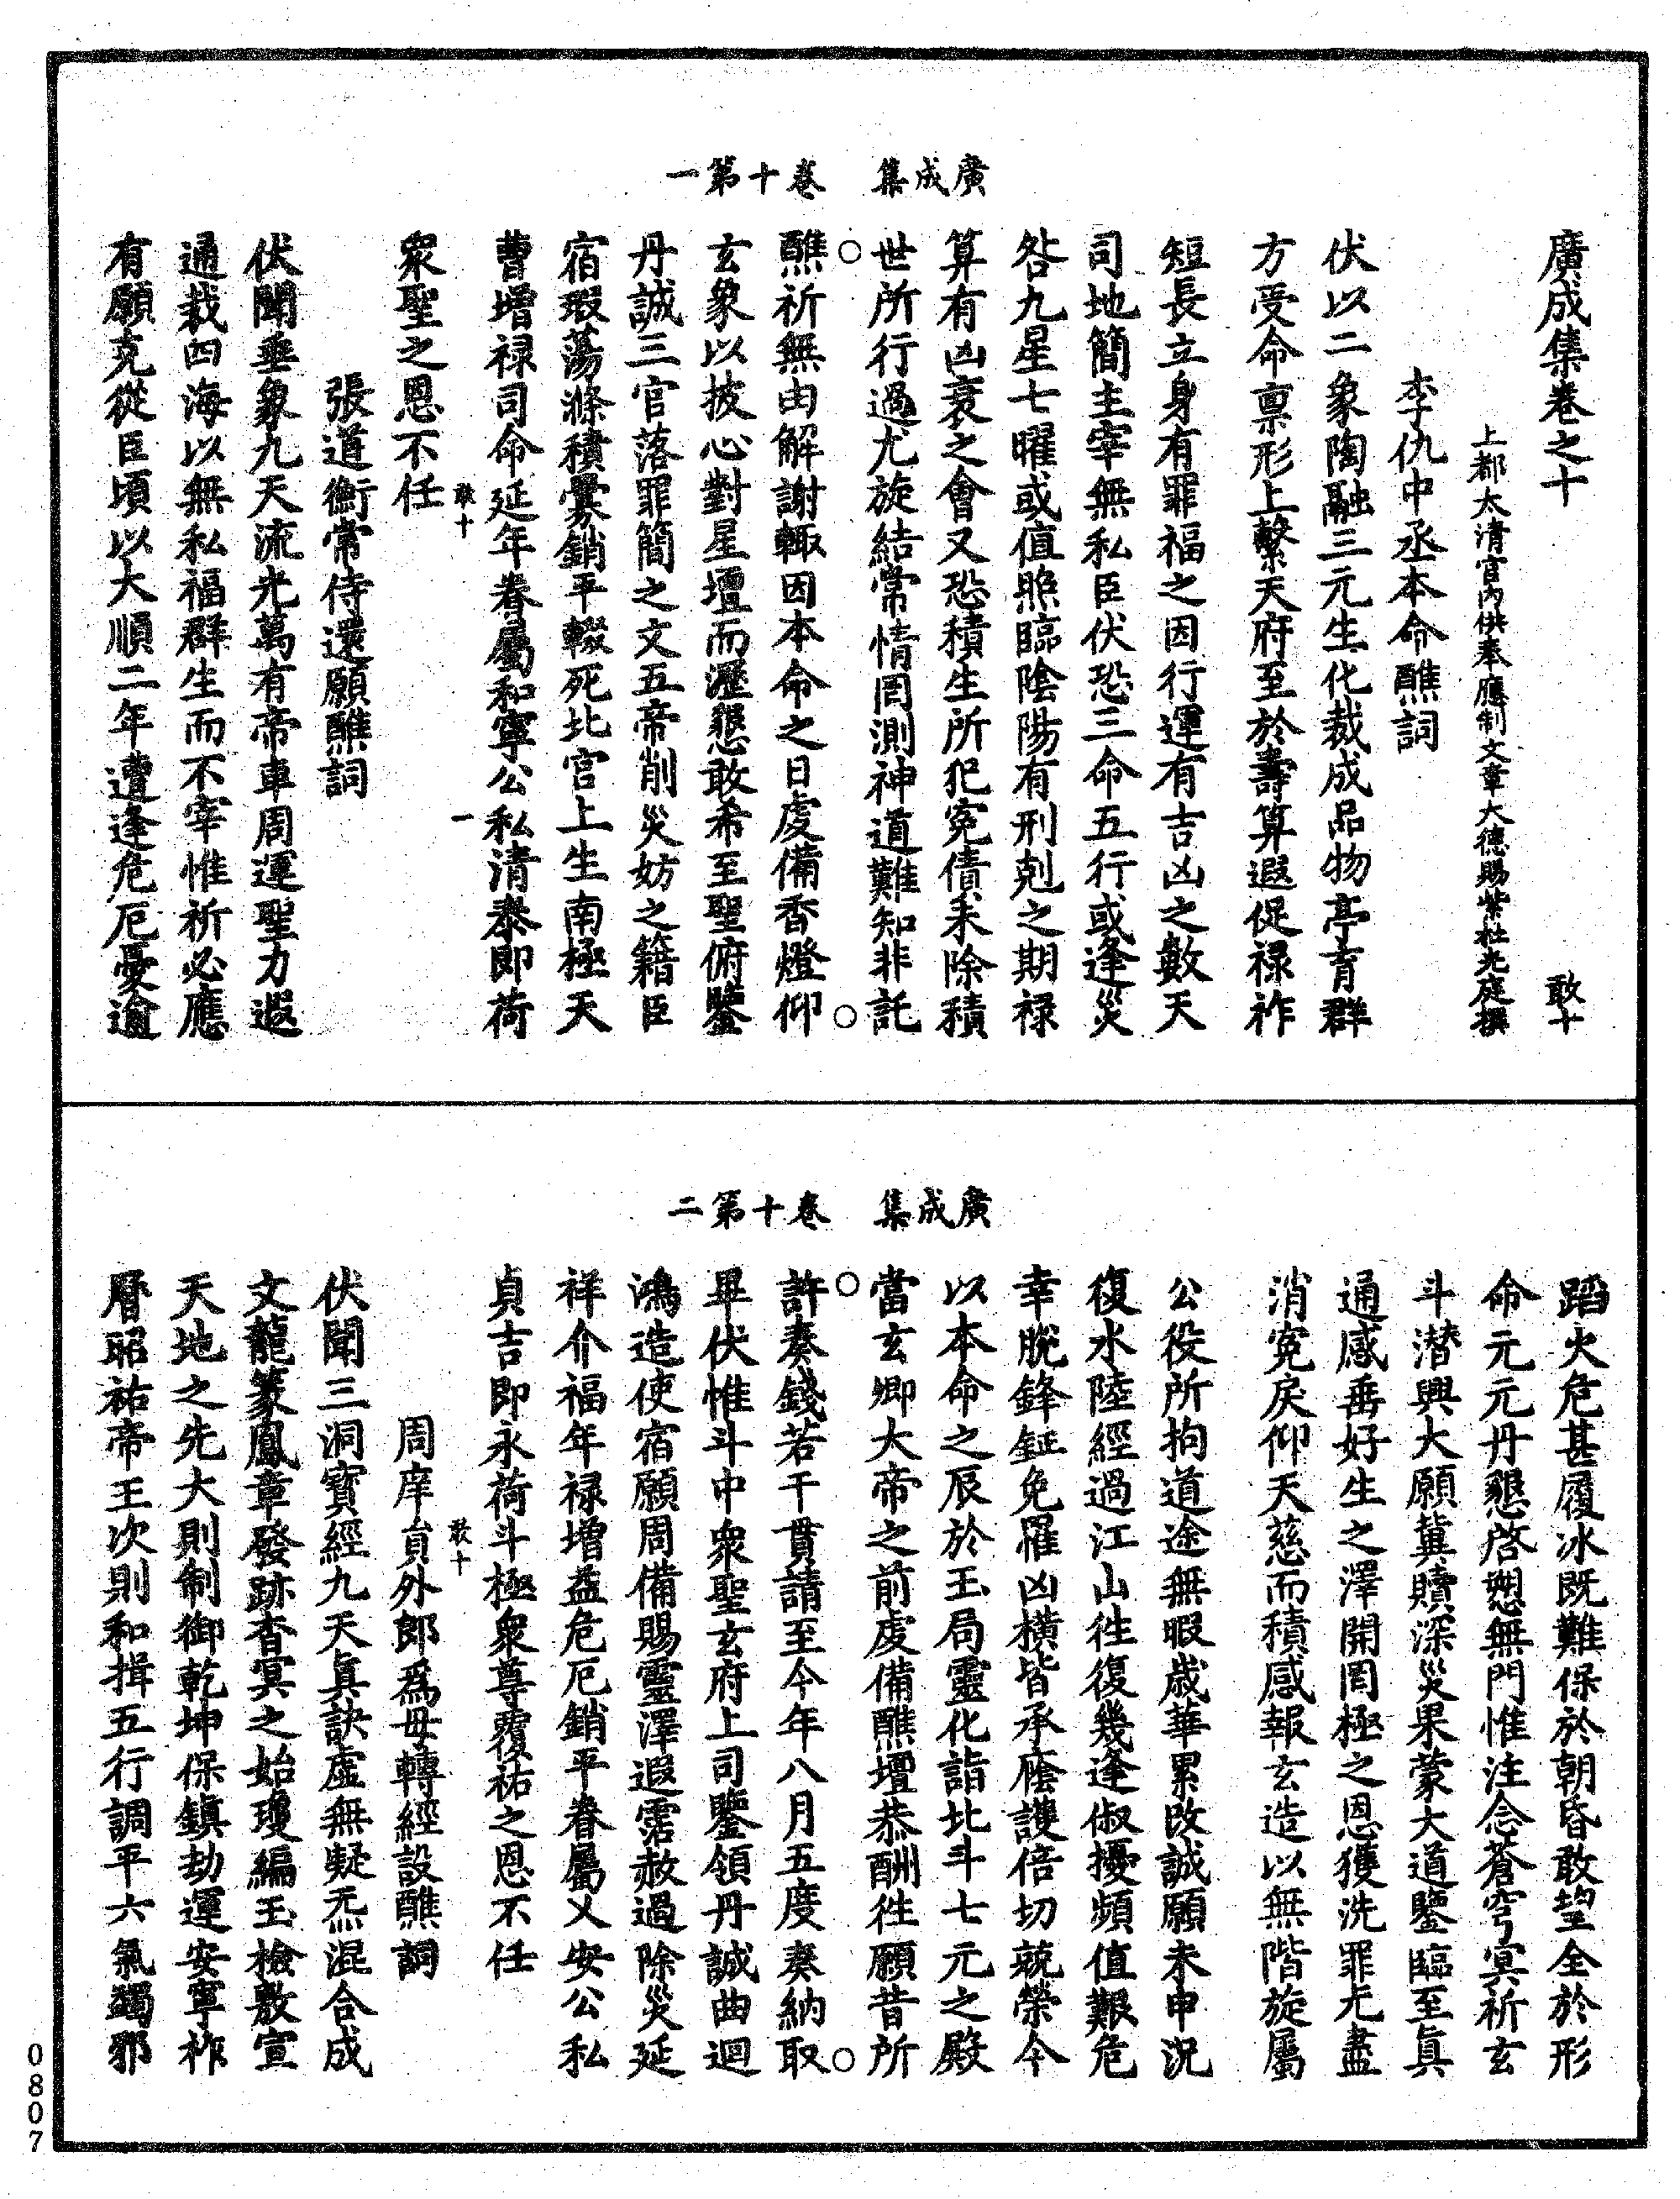 廣成集　卷十第一
廣成集卷之十　敢十
上都太清宮內供奉應制文章大德賜紫杜光庭撰
李仇中丞本命醮詞
伏以二象陶融三元生化裁成品物亭育群
方受命稟形上繫天府至於壽算遐促禄祚
短長立身有罪福之因行運有吉凶之數天
司地簡主宰無私臣伏恐三命五行或逢災
咎九星七曜或值照臨陰陽有刑剋之期禄
算有凶衰之會又恐積生所犯冤債未除積
世所行過尤旋結常情罔測神道難知非託
醮祈無由解謝輙因本命之日虔備香燈仰
玄象以披心對星壇而瀝懇敢希至聖俯鑒
丹誠三官落罪簡之文五帝削災妨之籍臣
宿瑕蕩滌積釁銷平輟死北宮上生南極天
曹增禄司命延年眷屬和寧公私清泰即荷
眾聖之恩不任
敢十　一
張道衡常侍還願醮詞
伏聞垂象九天流光萬有帝車周運聖力遐
通裁四海以無私福群生而不宰惟祈必應
有願克從臣頃以大順二年遭逢危厄憂逾
廣成集　卷十第二
蹈火危甚履冰既難保於朝昏敢望全於形
命元元丹懇啓愬無門惟注念蒼穹冥祈玄
斗潛興大願冀贖深災果蒙大道鑒臨至真
通感垂好生之澤開罔極之恩獲洗罪尤盡
消冤戾仰天慈而積感報玄造以無階旋屬
公役所拘道途無暇歲華累改誠願未申況
復水陸經過江山往復幾逢俶擾頻值艱危
幸脫鋒鉦免罹凶橫皆承廕護倍切兢榮今
以本命之辰於玉局靈化詣北斗七元之殿
當玄卿大帝之前虔備醮壇恭酬往願昔所
許奏錢若干貫請至今年八月五度奏納取
畢伏惟斗中眾聖玄府上司鑒領丹誠曲迴
鴻造使宿願周備賜靈澤遐霑赦過除災延
祥介福年禄增益危厄銷平眷屬乂安公私
貞吉即永荷斗極眾尊覆祐之恩不任
敢十
周庠貟外郎爲母轉經設醮詞
伏聞三洞寶經九天真訣虛無疑炁混合成
文龍篆鳳章發跡杳冥之始瓊編玉檢敷宣
天地之先大則制御乾坤保鎮劫運安寧祚
曆昭祐帝王次則和揖五行調平六氣蠲邪
0807